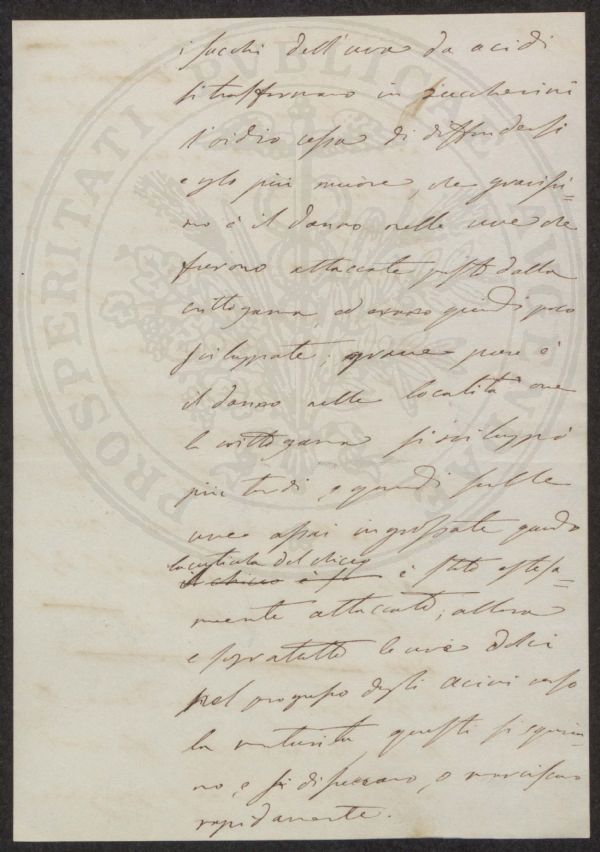 i succhi dell'uva da acidi
si trasformano in zuccherini
l'oidio cessa di diffondersi
e più muore, che gravissi=
mo è il danno nelle uve che
furono attaccate presto dalla
crittogama, ed erano quindi poco
sviluppate; grave pure è
il danno nelle località ove
la crittogama si sviluppò
più tardi, e quindi sulle
uve assai ingrossate quando
la cuticola del chicco
il chicco è st è stato estesa=
mente attaccato; allora
e sopratutto le uve dolci
nel progresso degli acini verso
la maturità questi si
no, e si disseccano, o marciscono
rapidamente.
PROSPERITATI PVBLICAE AVGENDAE